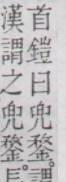 首鎧曰兜鍪謂
漢謂之兜鍪